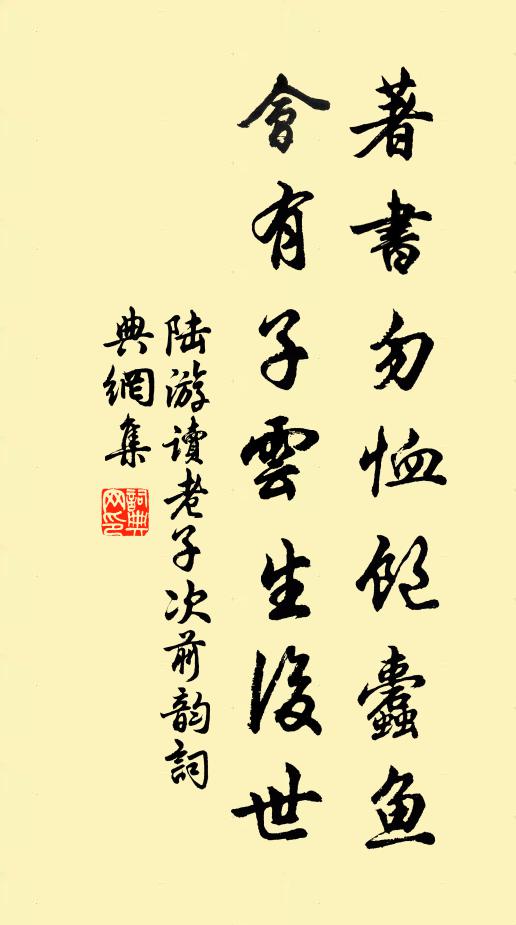 著書勿恤飽蠹魚
會有子雲生後世
陸游讀老子次前韵詞
典網集
詞典
网印